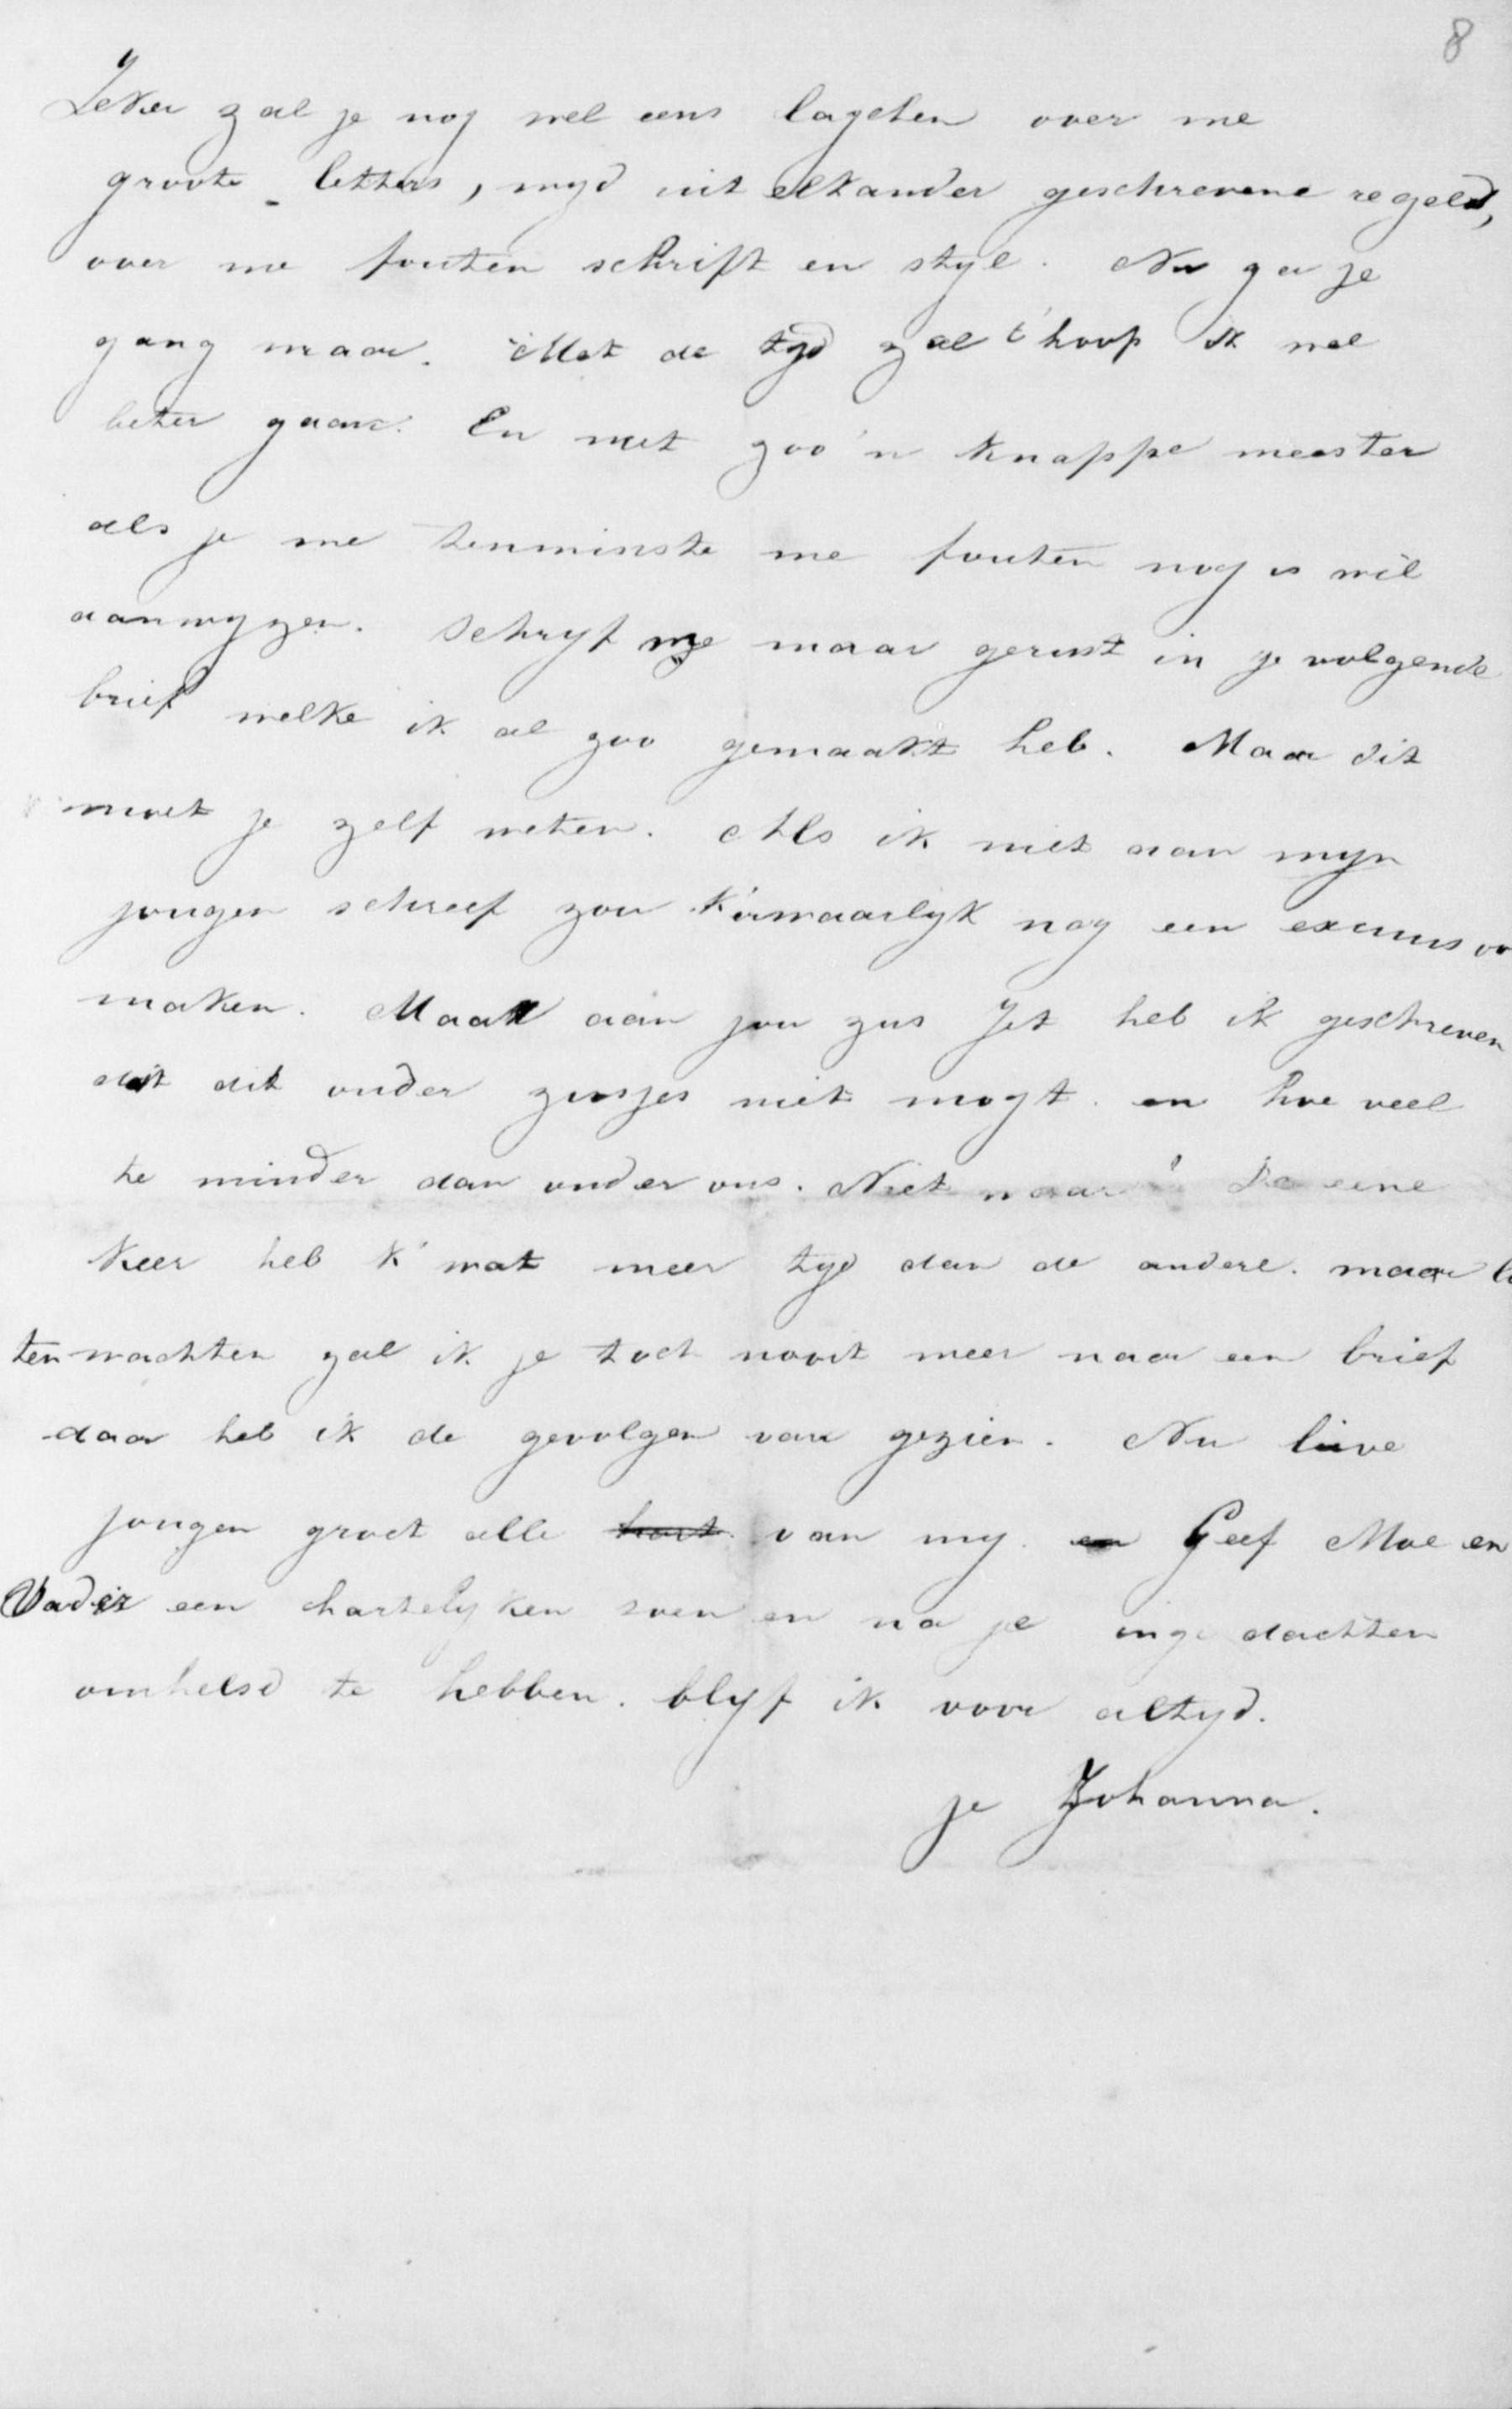 8
Zeker zal je nog wel eens lagchen over me
groote letters, wyd uit elkander geschrevene regels,
over me fouten schrift en styl. Nu ga je
gang maar. Met de tyd zal t'hoop ik wel
beter gaan. En met zoo'n knappe meester
als je me tenminste me fouten nog is wil
aanwyzen. Schryf me maar gerust in je volgende
brief welke ik al zoo gemaakt heb. Maar dit
moet je zelf weten. Als ik niet aan myn
jongen schreef zou k'erwaarlyk nog een excuus vo
maken. Maar aan jou zus Jet heb ik geschreven
dat dit onder zusjes niet mogt. en hoe veel
te minder dan onder ons. Niet waar? De eene
keer heb k' wat meer tyd dan de andere. maar la
ten wachten zal ik je toch nooit meer naar een brief
daar heb ik de gevolgen van gezien. Nu lieve
jongen groet alle van my. Geef Moe en
Vader een hartelyken zoen en na je inge dachten
omhelsd te hebben. blyf ik voor altyd.
je Johanna.